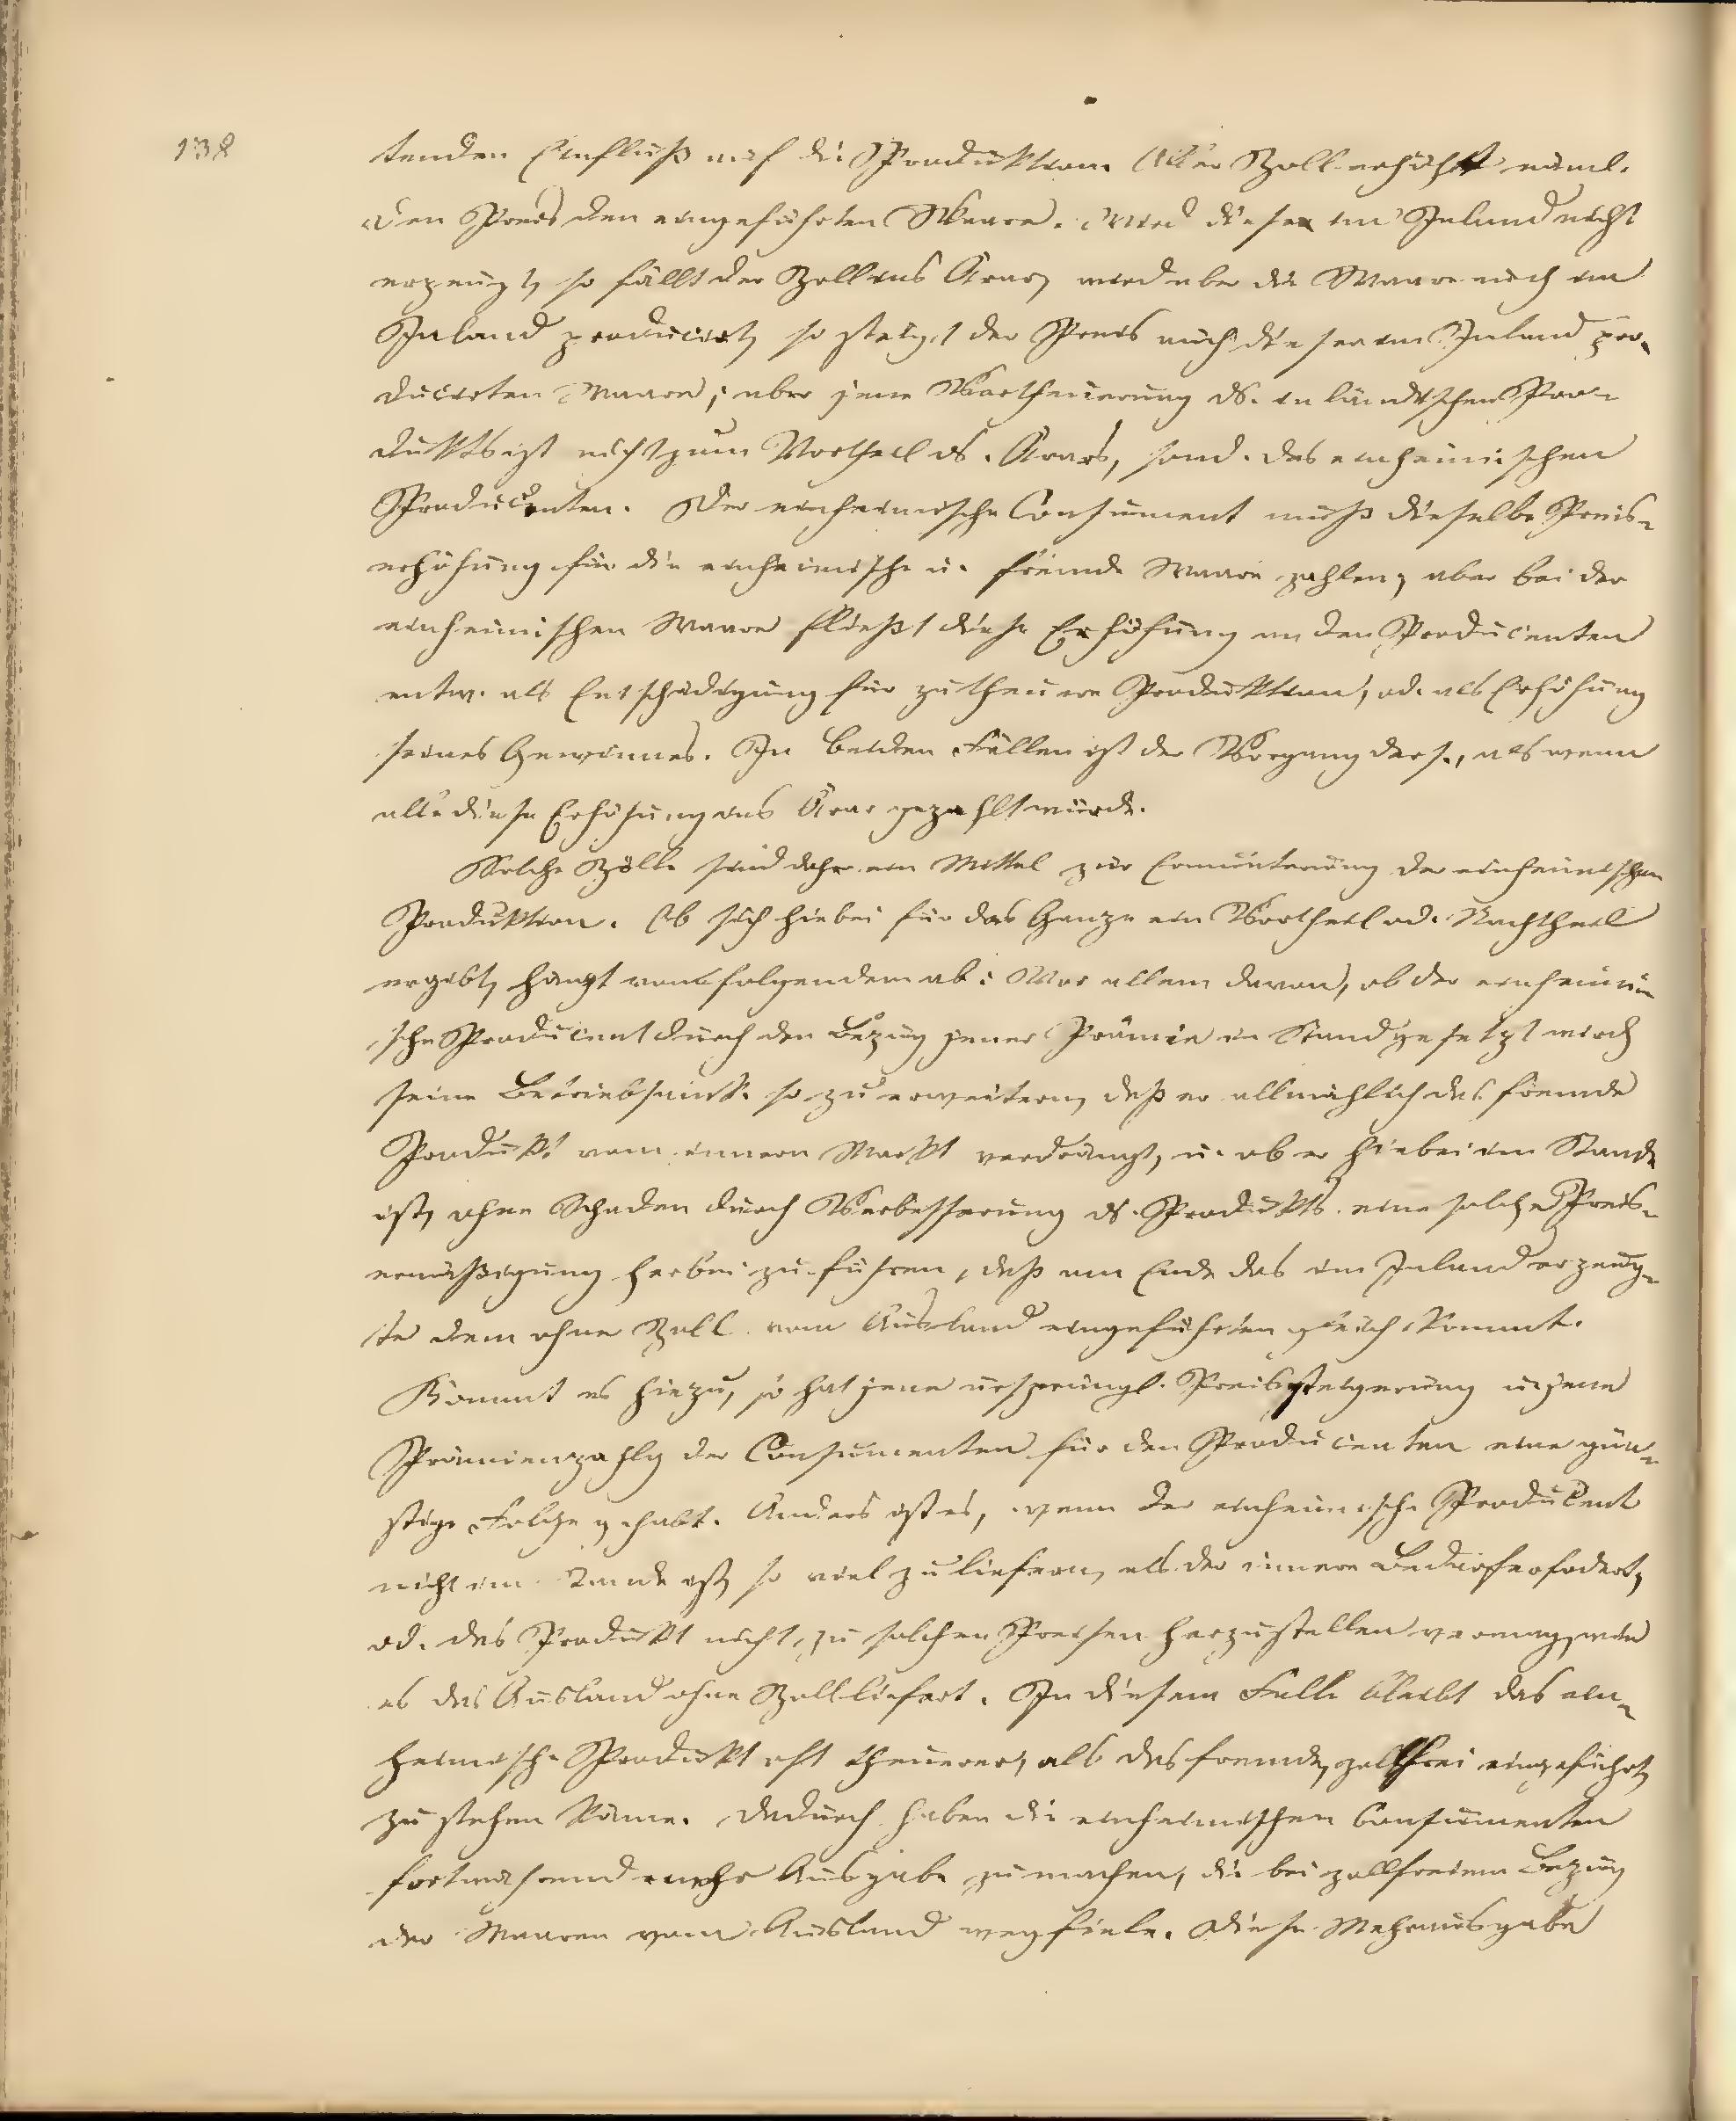 138
tenden Einfluß auf die Produktion. Aller Zoll erhöht näml.
den Preis der eingeführten Waare. Wird diese im Inland nicht
erzeugt, so fällt der Zoll ins Ärar, wird aber die Waare auch im
Inland producirt, so steigt der Preis auch dieser im Inland pro-
ducirten Waare; aber jene Vertheuerung ds. inländischen Pro-
dukts ist nicht zum Vortheil ds. Ärars, sond. des einheimischen
Producenten. Der einheimische Consument muß dieselbe Preis-
erhöhung für die einheimische u. fremde Waare zahlen, aber bei der
einheimischen Waare fließt diese Erhöhung an den Producenten
entw. als Entschädigung für zu theuere Produktion, od. als Erhöhung
seines Gewinnes. In beiden Fällen ist der Vorgang ders., als wenn
alle diese Erhöhung ins Ärar gezahlt würde.
Solche Zölle sind daher ein Mittel zur Ermunterung der einheimischen
Produktion. Ob sich hiebei für das Ganze ein Vortheil od. Nachtheil
ergibt, hängt von folgendem ab: Vor allem davon, ob der einheimi-
sche Producent durch den Bezug jener Prämie in Stand gesetzt wird,
seine so zu erweitern, daß er allmählich das fremde
Produkt vom innern Markt verdrängt, u. ob er hiebei im Stande
ist, ohne Schaden durch Verbesserung ds. Produkts eine solche Preis-
ermäßigung herbei zu führen, daß am Ende das im Inland erzeug-
te dem ohne Zoll vom Ausland eingeführten gleich kommt.
Kommt es hiezu, so hat jene ursprüngl. Preissteigerung u. jene
Prämienzahlg der Consumenten für den Producenten eine gün-
stige Folge gehabt. Anders ist es, wenn der einheimische Producent
nicht im Stande ist, so viel zu liefern, als der innere Bedarf erfodert,
od. das Produkt nicht zu solchen Preisen herzustellen vermag, wie
es das Ausland ohne Zoll liefert. In diesem Falle bleibt das ein-
heimische Produkt oft theuerer, als das fremde, zollfrei eingeführt,
zu stehen käme. Dadurch haben die einheimischen Consumenten
fortwährend mehr Ausgabe zu machen, die bei zollfreiem Bezug
der Waaren vom Ausland wegfiele. Diese Mehrausgabe